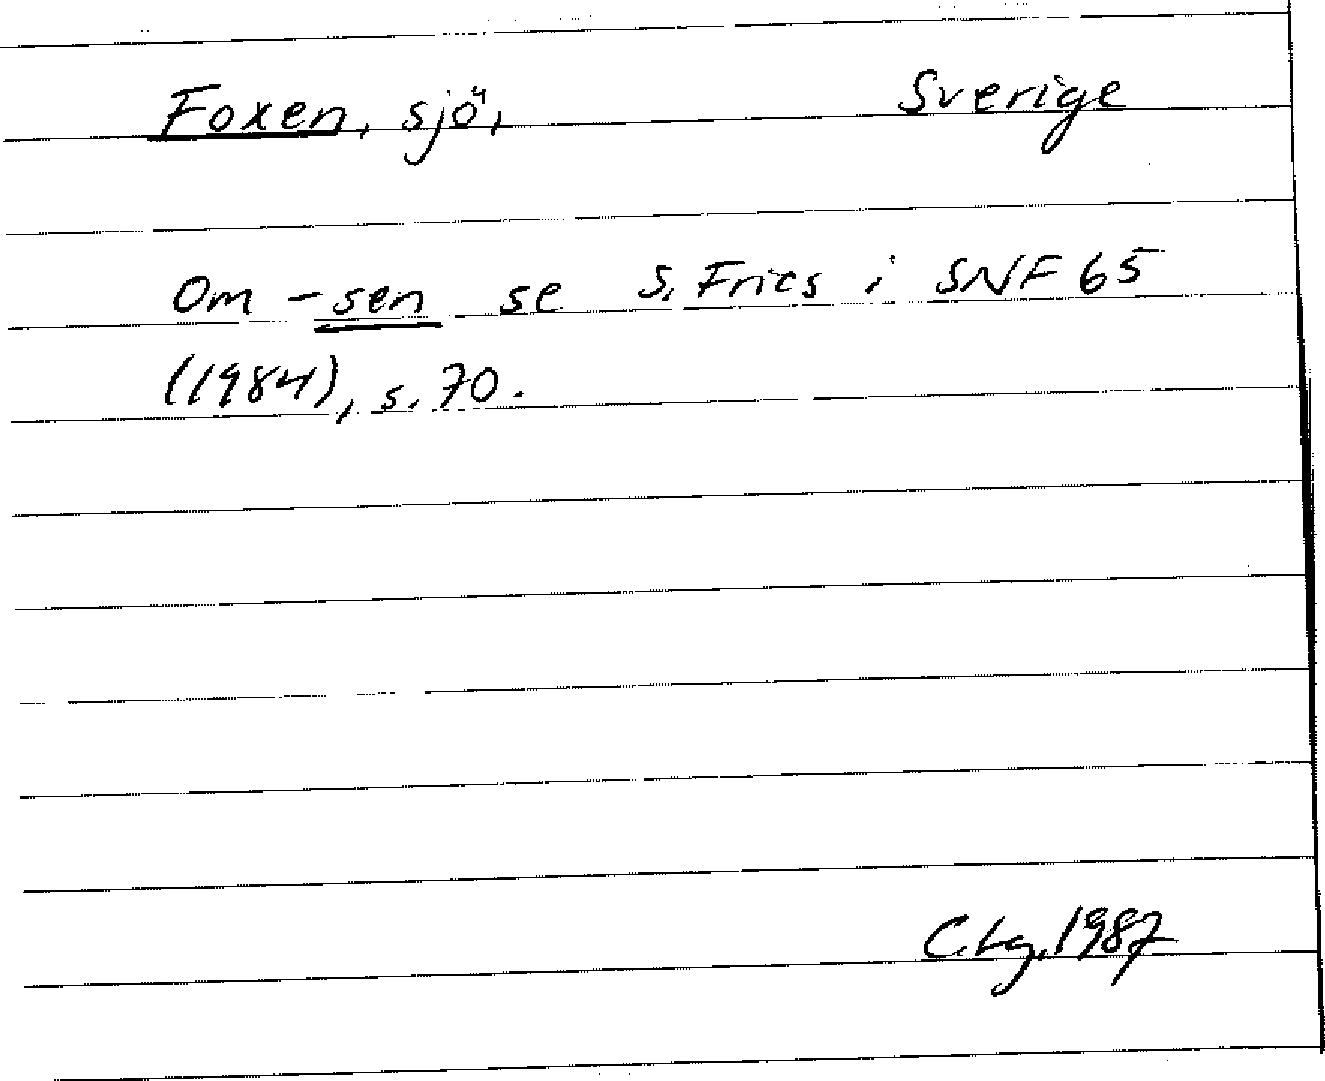 Foxen, sjö, Sverige
Om -sen se S. Fries i SNF 65
(1984), s. 70.
C. Lg, 1987